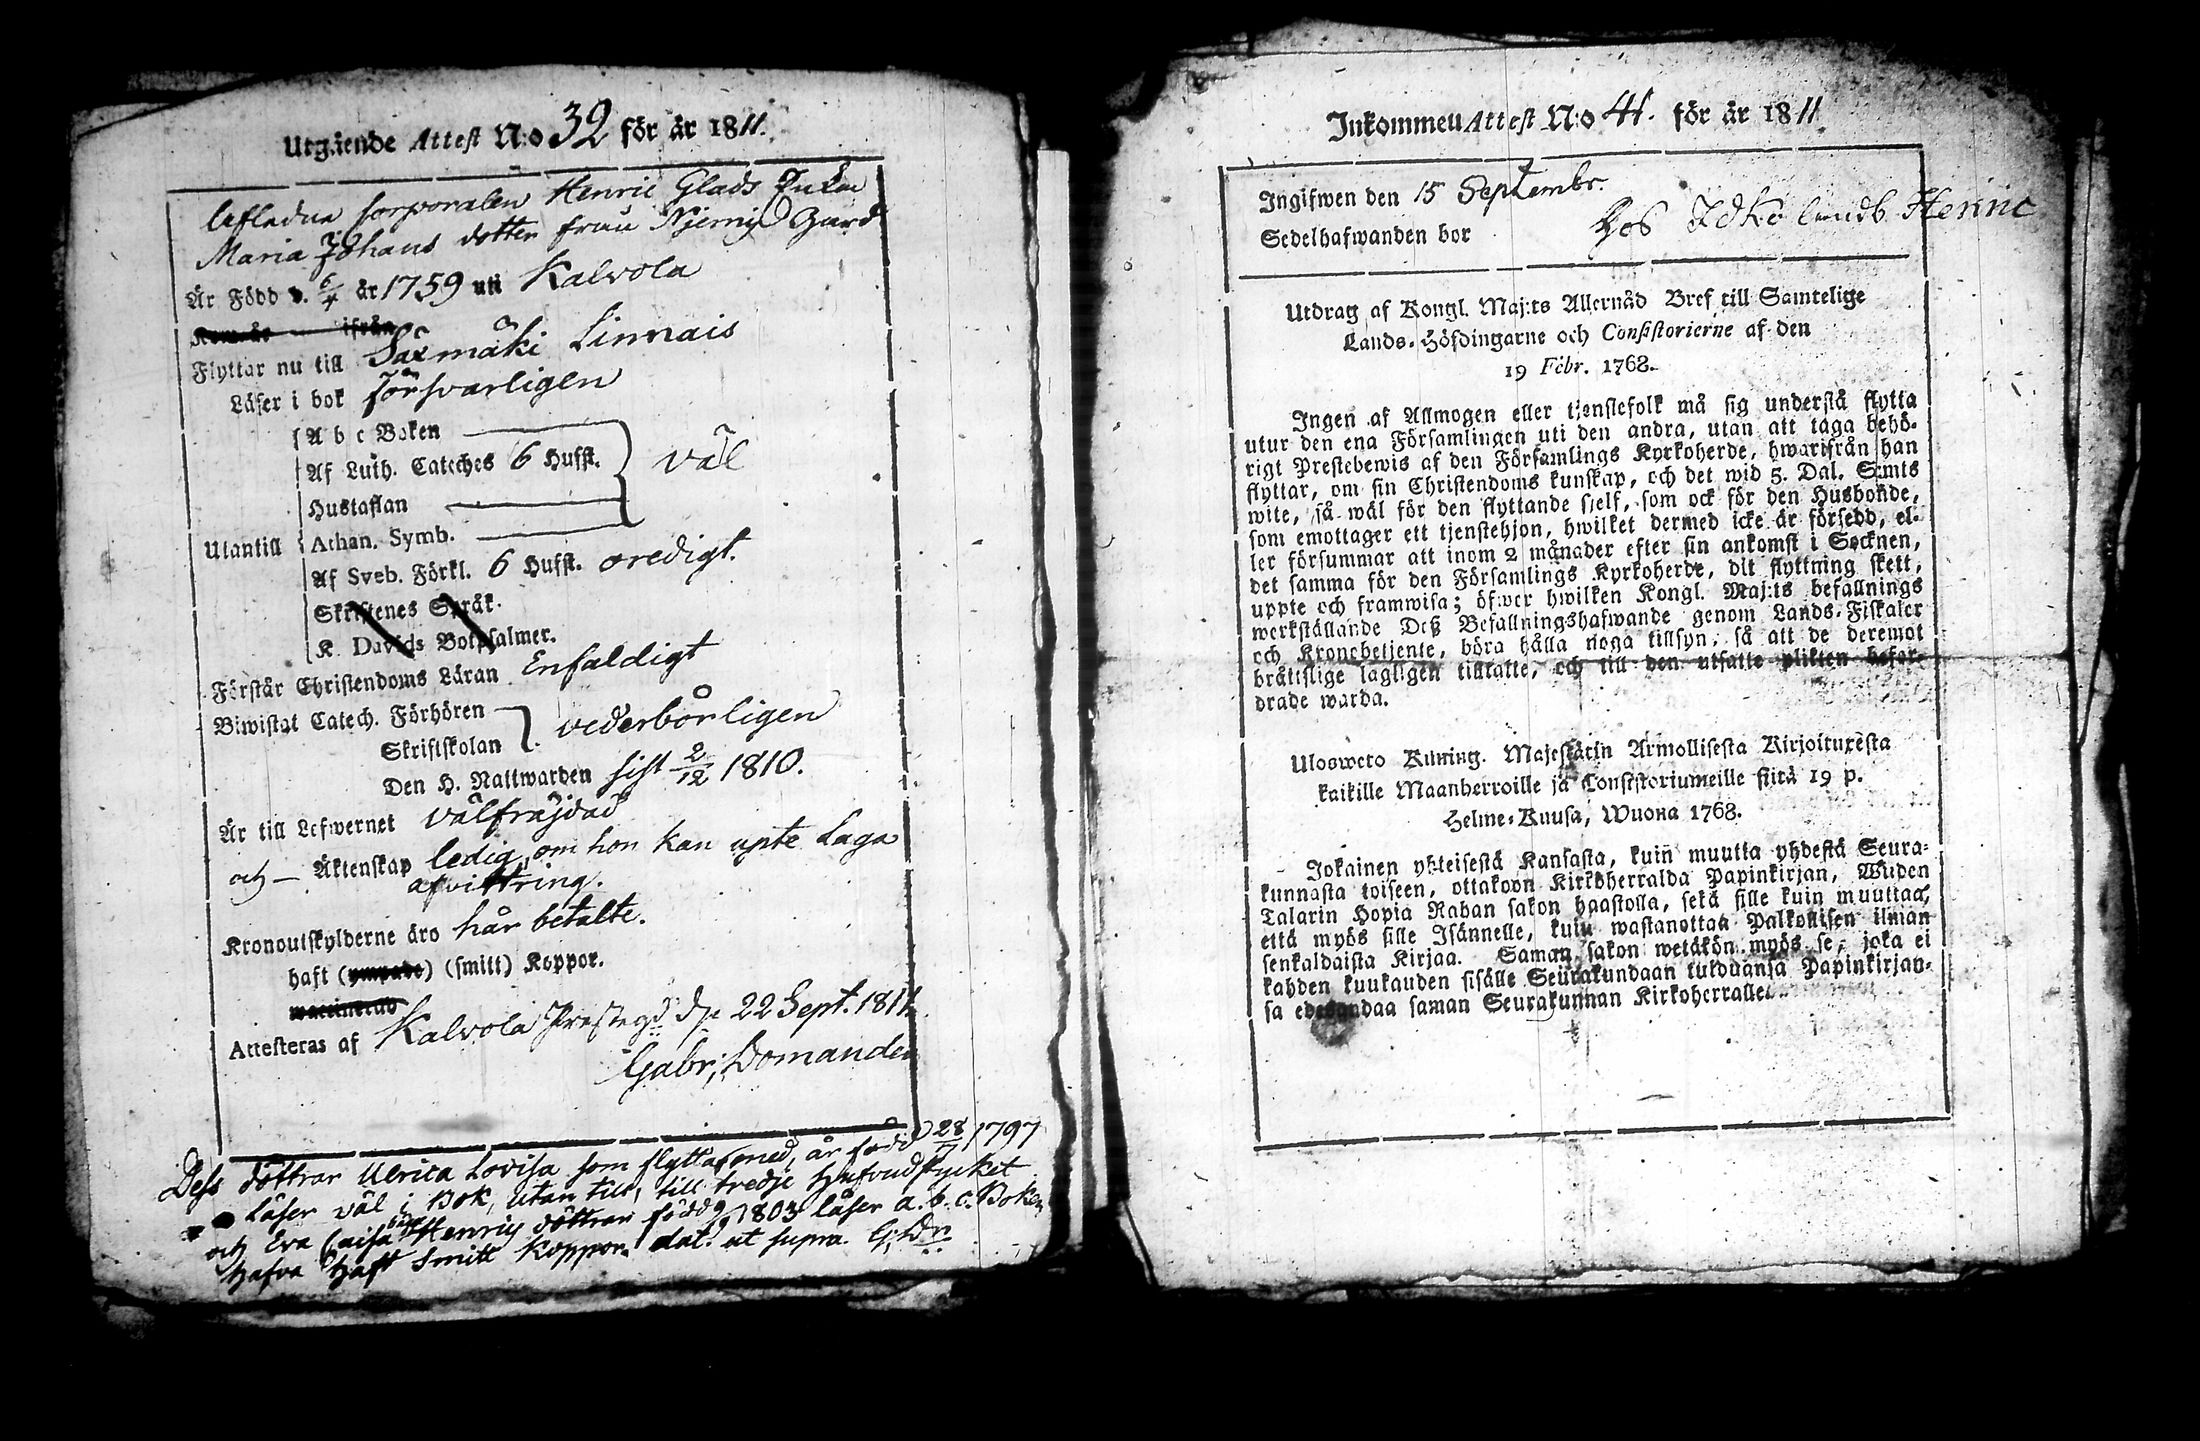 Utgående Attest N:o 32 för år 1811.
lefladne corporalen Henric Glads Enka
Maria Johans dotter från Niemis Gård
Är Född d. 6/4 år 1759 uti Kalvola
ifrån
Flyttar nu till Säxmäki Linnais
Läser i bok försvarligen
A b c Boken
Af Luth. Cateches 6 Hufst. väl
Hustaflan
Utantill Athan. Symb.
Af Sveb. Förkl. 6 Hufst. oredigt.
Skriftenes Språk.
K. Davids Botpsalmer.
Förstår Christendoms Läran Enfaldigt
Biwistat Catech. Förhören
Skriftskolan vederbörligen
Den H. Nattwarden sist 2/12 1810.
Är till Lefwernet välfräjdad
och — Äktenskap ledig, om hon kan upte Laga
afvittring.
Kronoutskylderne äro här betalte.
haft (ympade) (smitt) Koppor.
waccinerad
Attesteras af Kalvola Prestegd d. 22 Sept. 1811.
Gabr. Domander
Dess döttrar Ulrica Lovisa som flytta med, är född 28/7 1797
Läser väl i Bok, utan till, till tredje Hufvudstycket
och Eva Caisa Henrics döttrar född 9/9 1803 läser a. b. c. Boken
hafva haft Smitt Koppor. dat. ut supra G: Dr.
Inkommen Attest N:o 41. för år 1811
Ingifwen den 15 Septembr.
Sedelhafwanden bor Hos Idko landb. Henric
Utdrag af Kongl. Maj:ts Allernåd Bref till Samtelige
Lands-Höfdingarne och Consistorierne af den
19 Febr. 1768.
Ingen af Allmogen eller tjenstefolk må sig understå flytta
utur den ena Församlingen uti den andra, utan att taga behö-
rigt Prestebewis af den Församlings Kyrkoherde, hwarifrån han
flyttar, om sin Christendoms kunskap, och det wid 5. Dal. S:mts
wite, så wäl för den flyttande sjelf, som ock för den Husbonde,
som emottager ett tjenstehjon, hwilket dermed icke är försedd, el-
ler försummar att inom 2 månader efter sin ankomst i Socknen,
det samma för den Församlings Kyrkoherde, dit flyttning skett,
uppte och framwisa; öfwer hwilken Kongl. Maj:ts befallnings
werkställande Deß Befallningshafwande genom Lands-Fiskaler
och Kronobetjente, böra hålla noga tillsyn, så att de deremot
bråttslige lagligen tilltalte, och till den utsatte plikten befor-
drade warda.
Ulosweto Kuning. Majestätin Armollisesta Kirjoituxesta
kaikille Maanherroille ja Consistoriumeille siitä 19 p.
Helme-Kuusa, Wuona 1768.
Jokainen yhteisestä Kansasta, kuin muutta yhdestä Seura-
kunnasta toiseen, ottakoon Kirkoherralda Papinkirjan, Wiiden
Talarin Hopia Rahan sakon haastolla, sekä sille kuin muuttaa,
että myös sille Isännelle, kuin wastanottaa Palkollisen ilman
senkaldaista Kirjaa. Saman sakon wetäkön myös se, joka ei
kahden kuukauden sisälle Seurakundaan tulduansa Papinkirjan-
sa edesandaa saman Seurakunnan Kirkoherralle.